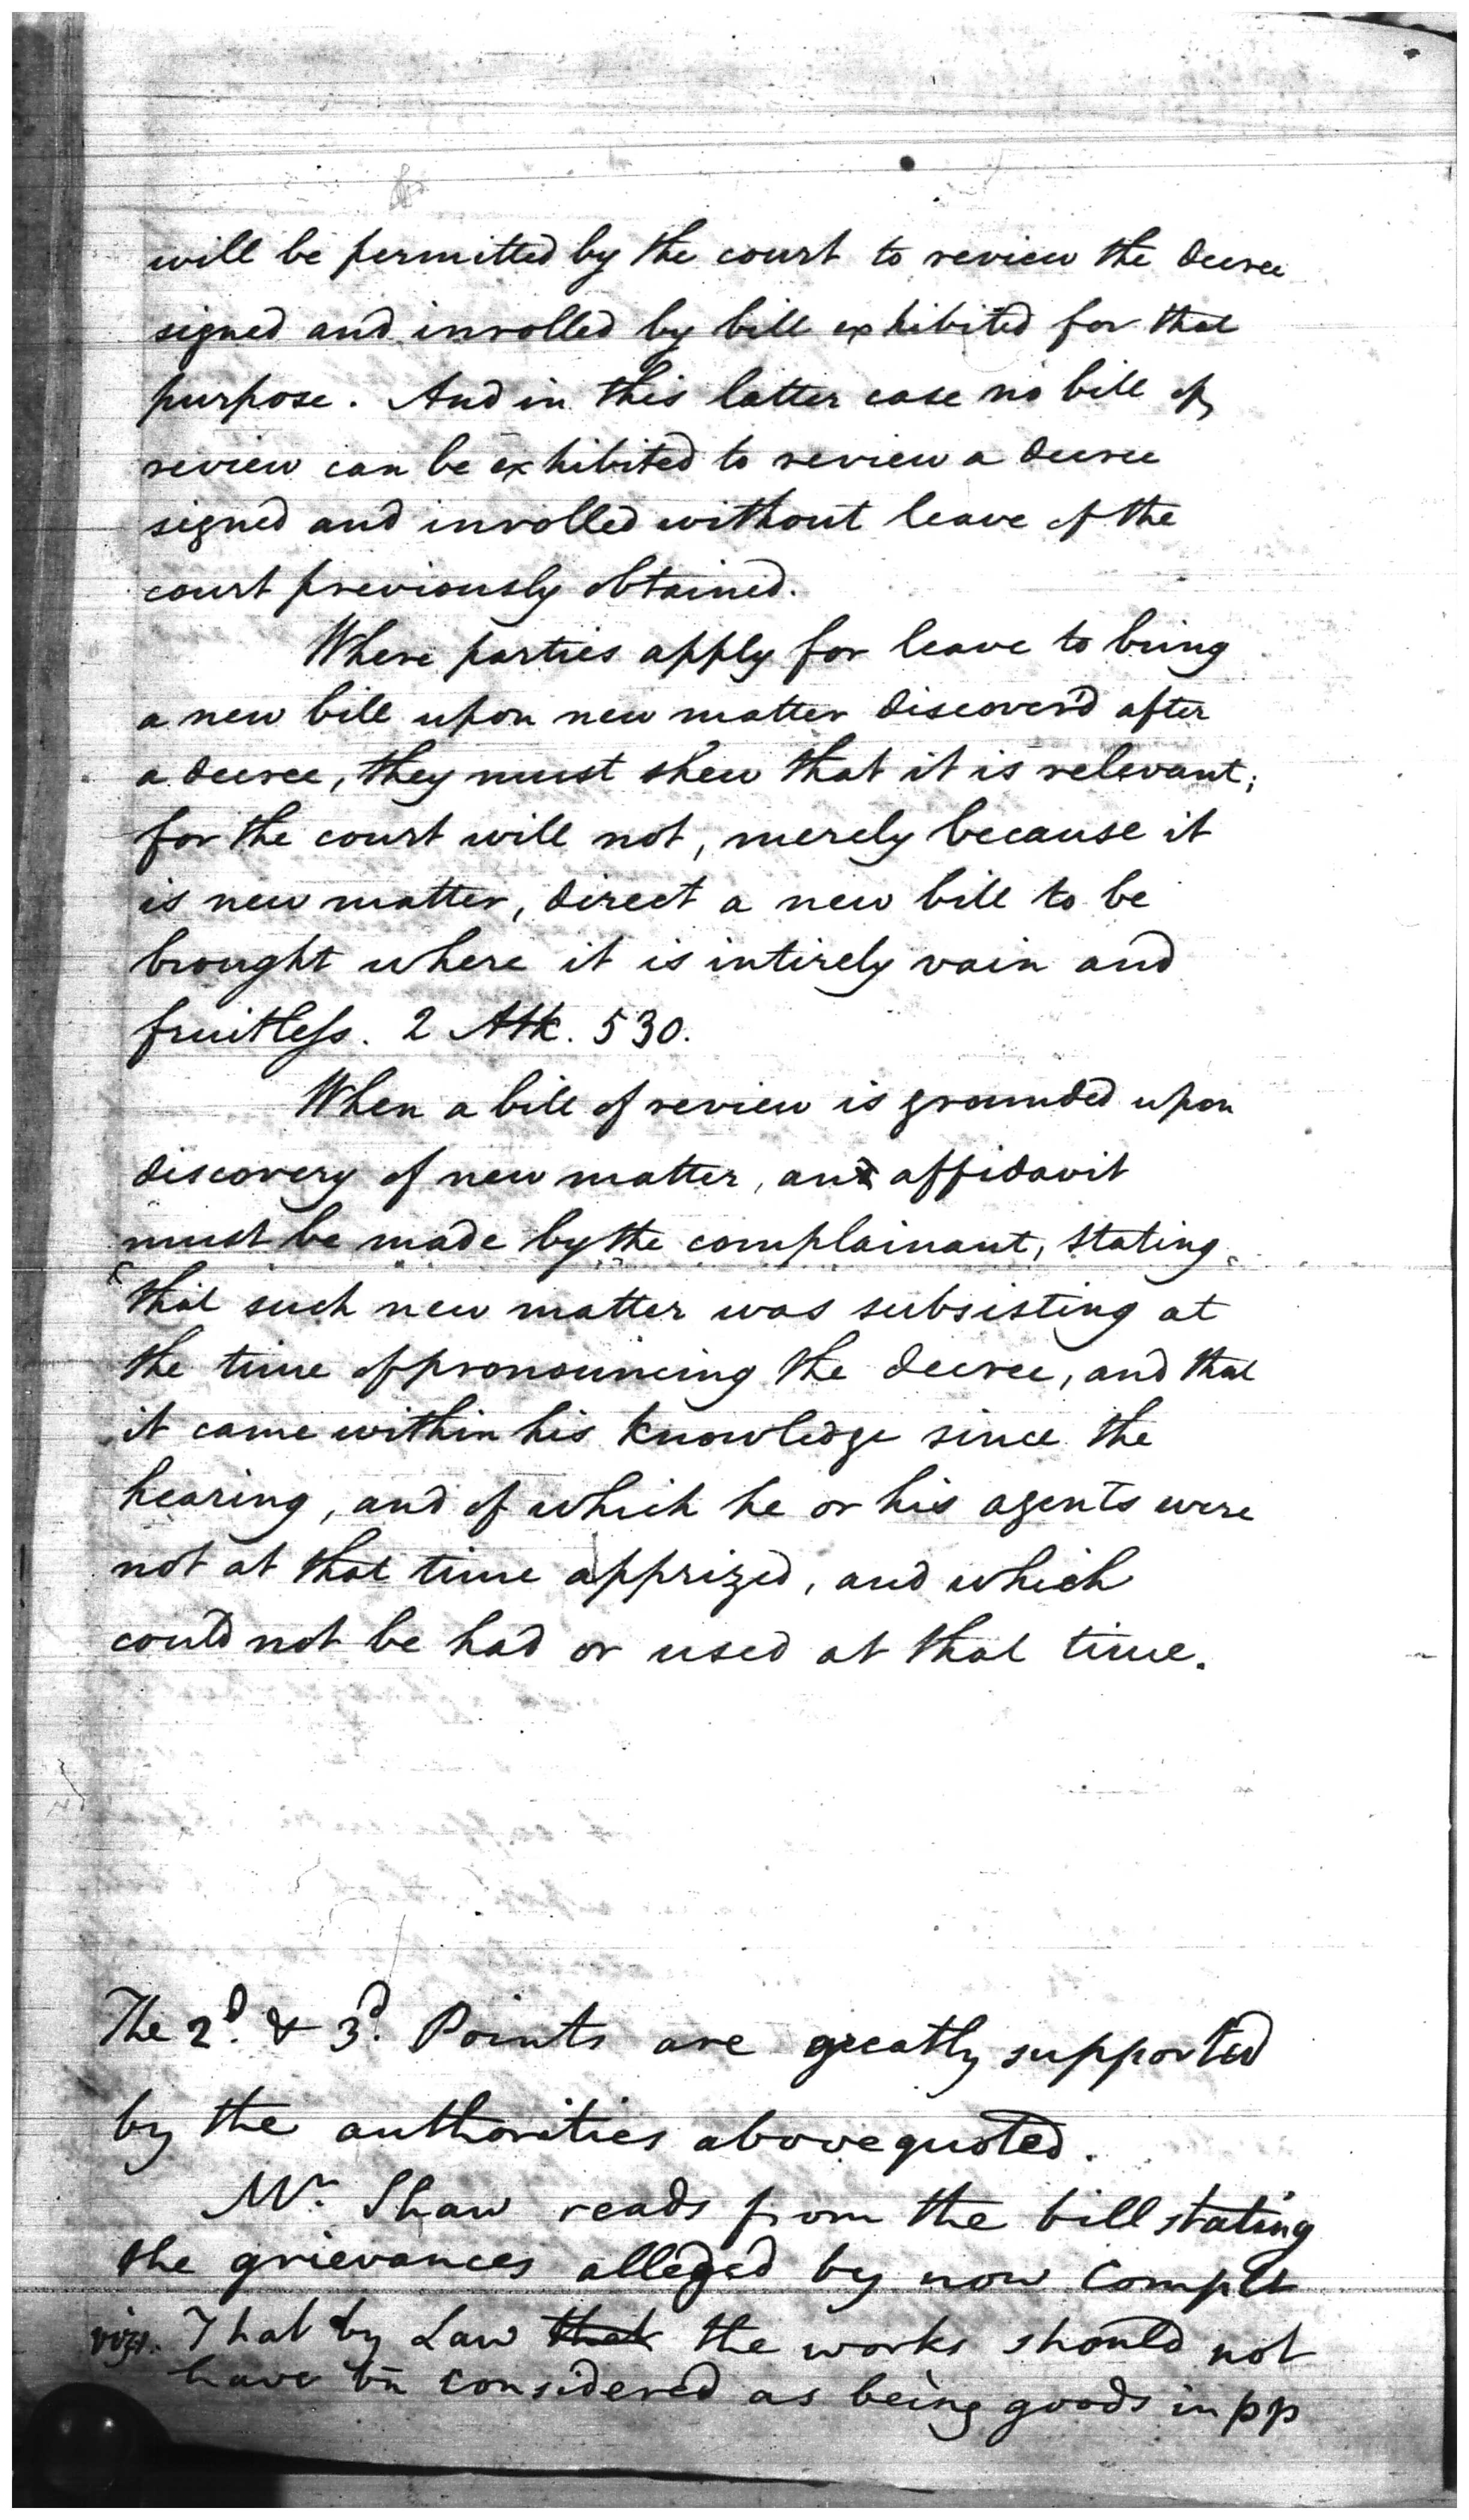 will be permitted by the court to review the decree
signed and inrolled by bill exhibited for that
purpose. And in this latter case no bill of
review can be exhibited to review a decree
signed and inrolled without leave of the
court previously obtained.
Where parties apply for leave to bring
a new bill upon new matter discover'd after
a decree, they must shew that it is relevant;
for the court will not, merely because it
is new matter, direct a new bill to be
brought where it is intirely vain and
fruitless. 2 Atk. 530.
When a bill of review is grounded upon
discovery of new matter, an affidavit
must be made by the complainant, stating
that such new matter was subsisting at
the time of pronouncing the decree, and that
it came within his knowledge since the
hearing, and of which he or his agents were
not at that time apprized, and which
could not be had or used at that time.
The 2d. & 3d. Points are greatly supported
by the authorities above quoted.
Mr. Shaw reads from the bill stating
the grievances alledged by now Complt
vizt. That by Law that the works should not
have bn considered as being goods in pp